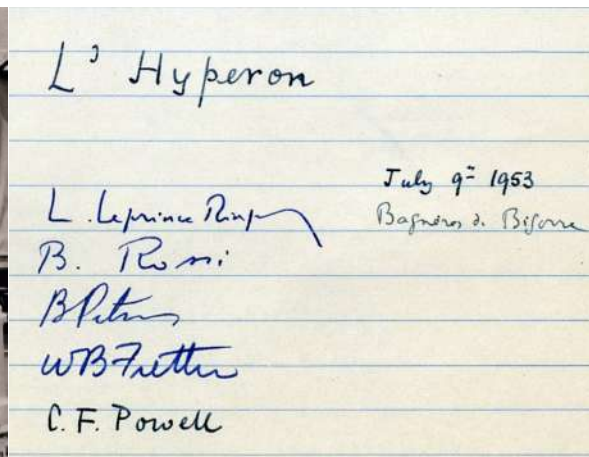 L' Hyperon
July 9th 1953
Bagnères de Bigorre
L. Leprince Ringuet
B. Rossi
B Peters
WB Fretter
C. F. Powell